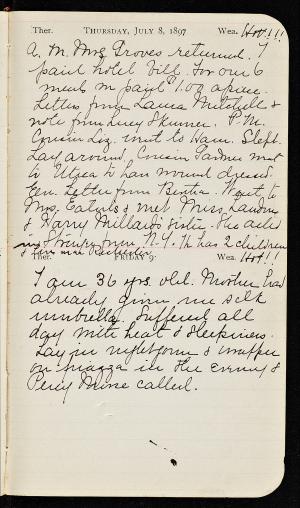 Ther. THURSDAY, JULY 8, 1897 Wea. Hot!!!
A.M. Mrs Groves returned. I
paid hotel bill. For our 6
meals m paid $1.00 apiece.
Letters from Laura Mitchell &
note from Lucy Skinner. P.M.
Cousin Liz. went to Ham. Slept.
Lay around. Cousin went
to Utica to have wound dressed.
Letter from Bertha. Went to
Mrs. & met Miss
& Harry Millard's sister. She acted
in from N.Y. has 2 children
Ther. FRIDAY 9 Wea. Hot!!
I am 36 yrs. old. Mother had
already given me silk
umbrella. Suffered all
day with heat & sleepiness.
Lay in nightgown & wrapper
on piazza in the evening &
Percy called.